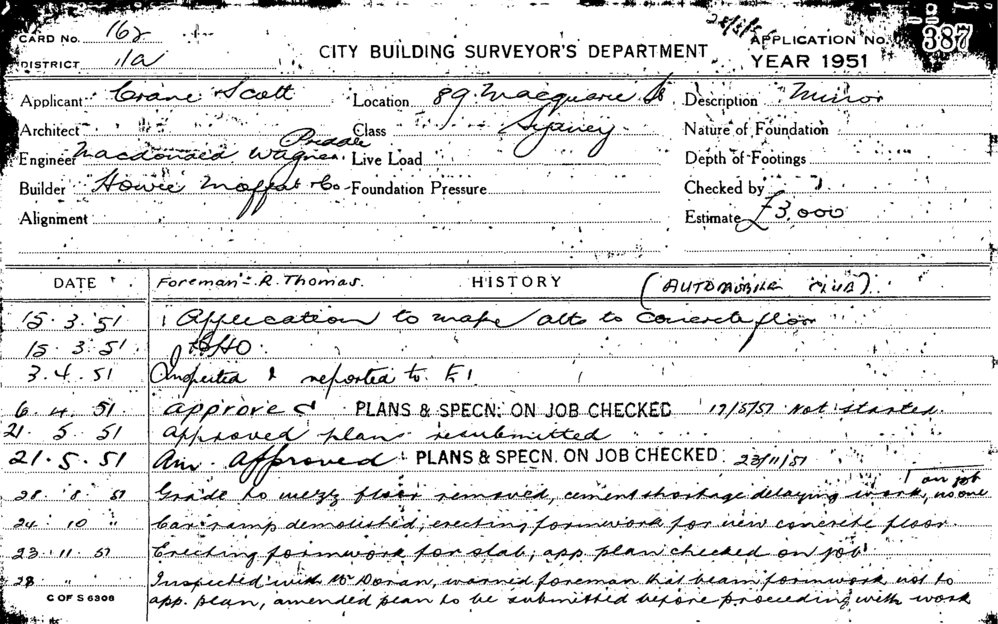 CARD No. 162
28/5/5
APPLICATION No. 387
DISTRICT 1a
CITY BUILDING SURVEYOR'S DEPARTMENT
YEAR 1951
Applicant Crane & Scott Location 89 Macquarie St Description Minor
Architect Class Sydney Nature of Foundation
Engineer Macdonald Wagner Priddle Live Load Depth of Footings
Builder Howie Moffat & Co Foundation Pressure Checked by
Alignment Estimate £3,000
DATE Foreman - R. Thomas. HISTORY (AUTOMOBILE CLUB)
15.3.51 Application to make alts to concrete floor
15.3.51
3.4.51 Inspected & reported to E1
6.4.51 Approved PLANS & SPECN. ON JOB CHECKED 17/5/51 Not started.
21.5.51 approved plans resubmitted
21.5.51 Am. Approved PLANS & SPECN. ON JOB CHECKED 23/11/51
28.8.51 Grade to mezz floor removed, cement shortage delaying work, no one on job
24.10 " Car ramp demolished, erecting formwork for new concrete floor.
23.11.51 Erecting formwork for slab; app. plan checked on job
28 " Inspected with Mr Doran, warned foreman that beam formwork not to
C OF S 6308 app. plan, amended plan to be submitted before proceeding with work